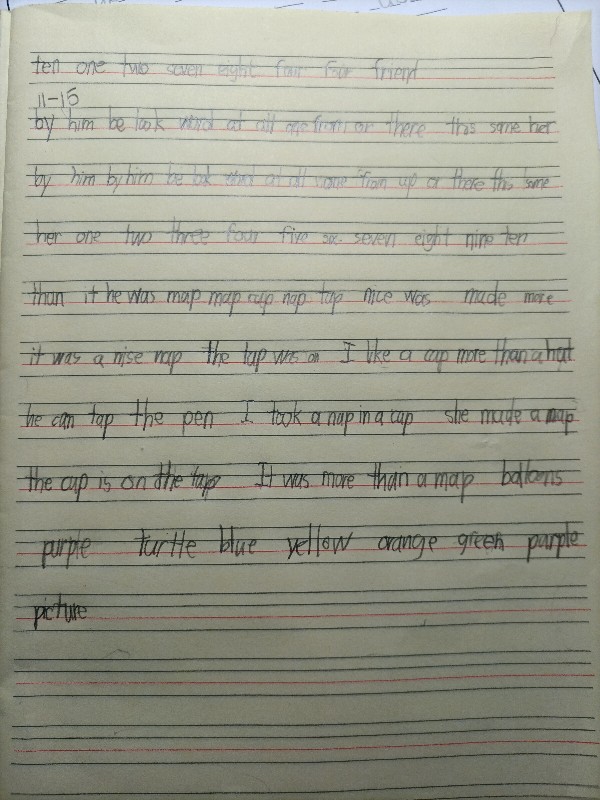 ten one two seven eight four four friend
11-15
by him be look word at all one from or there this same her
by him by him be look word at all some from up or there this same
her one two three four five six seven eight nine ten
than it he was map map cup nap tap nice was made more
it was a nise nap the tap was on I like a cap more than a hat
he can tap the pen I took a nap in a cap she made a map
the cap is on the tapp It was more than a map balloons
purple turtle blue yellow orange green purple
picture